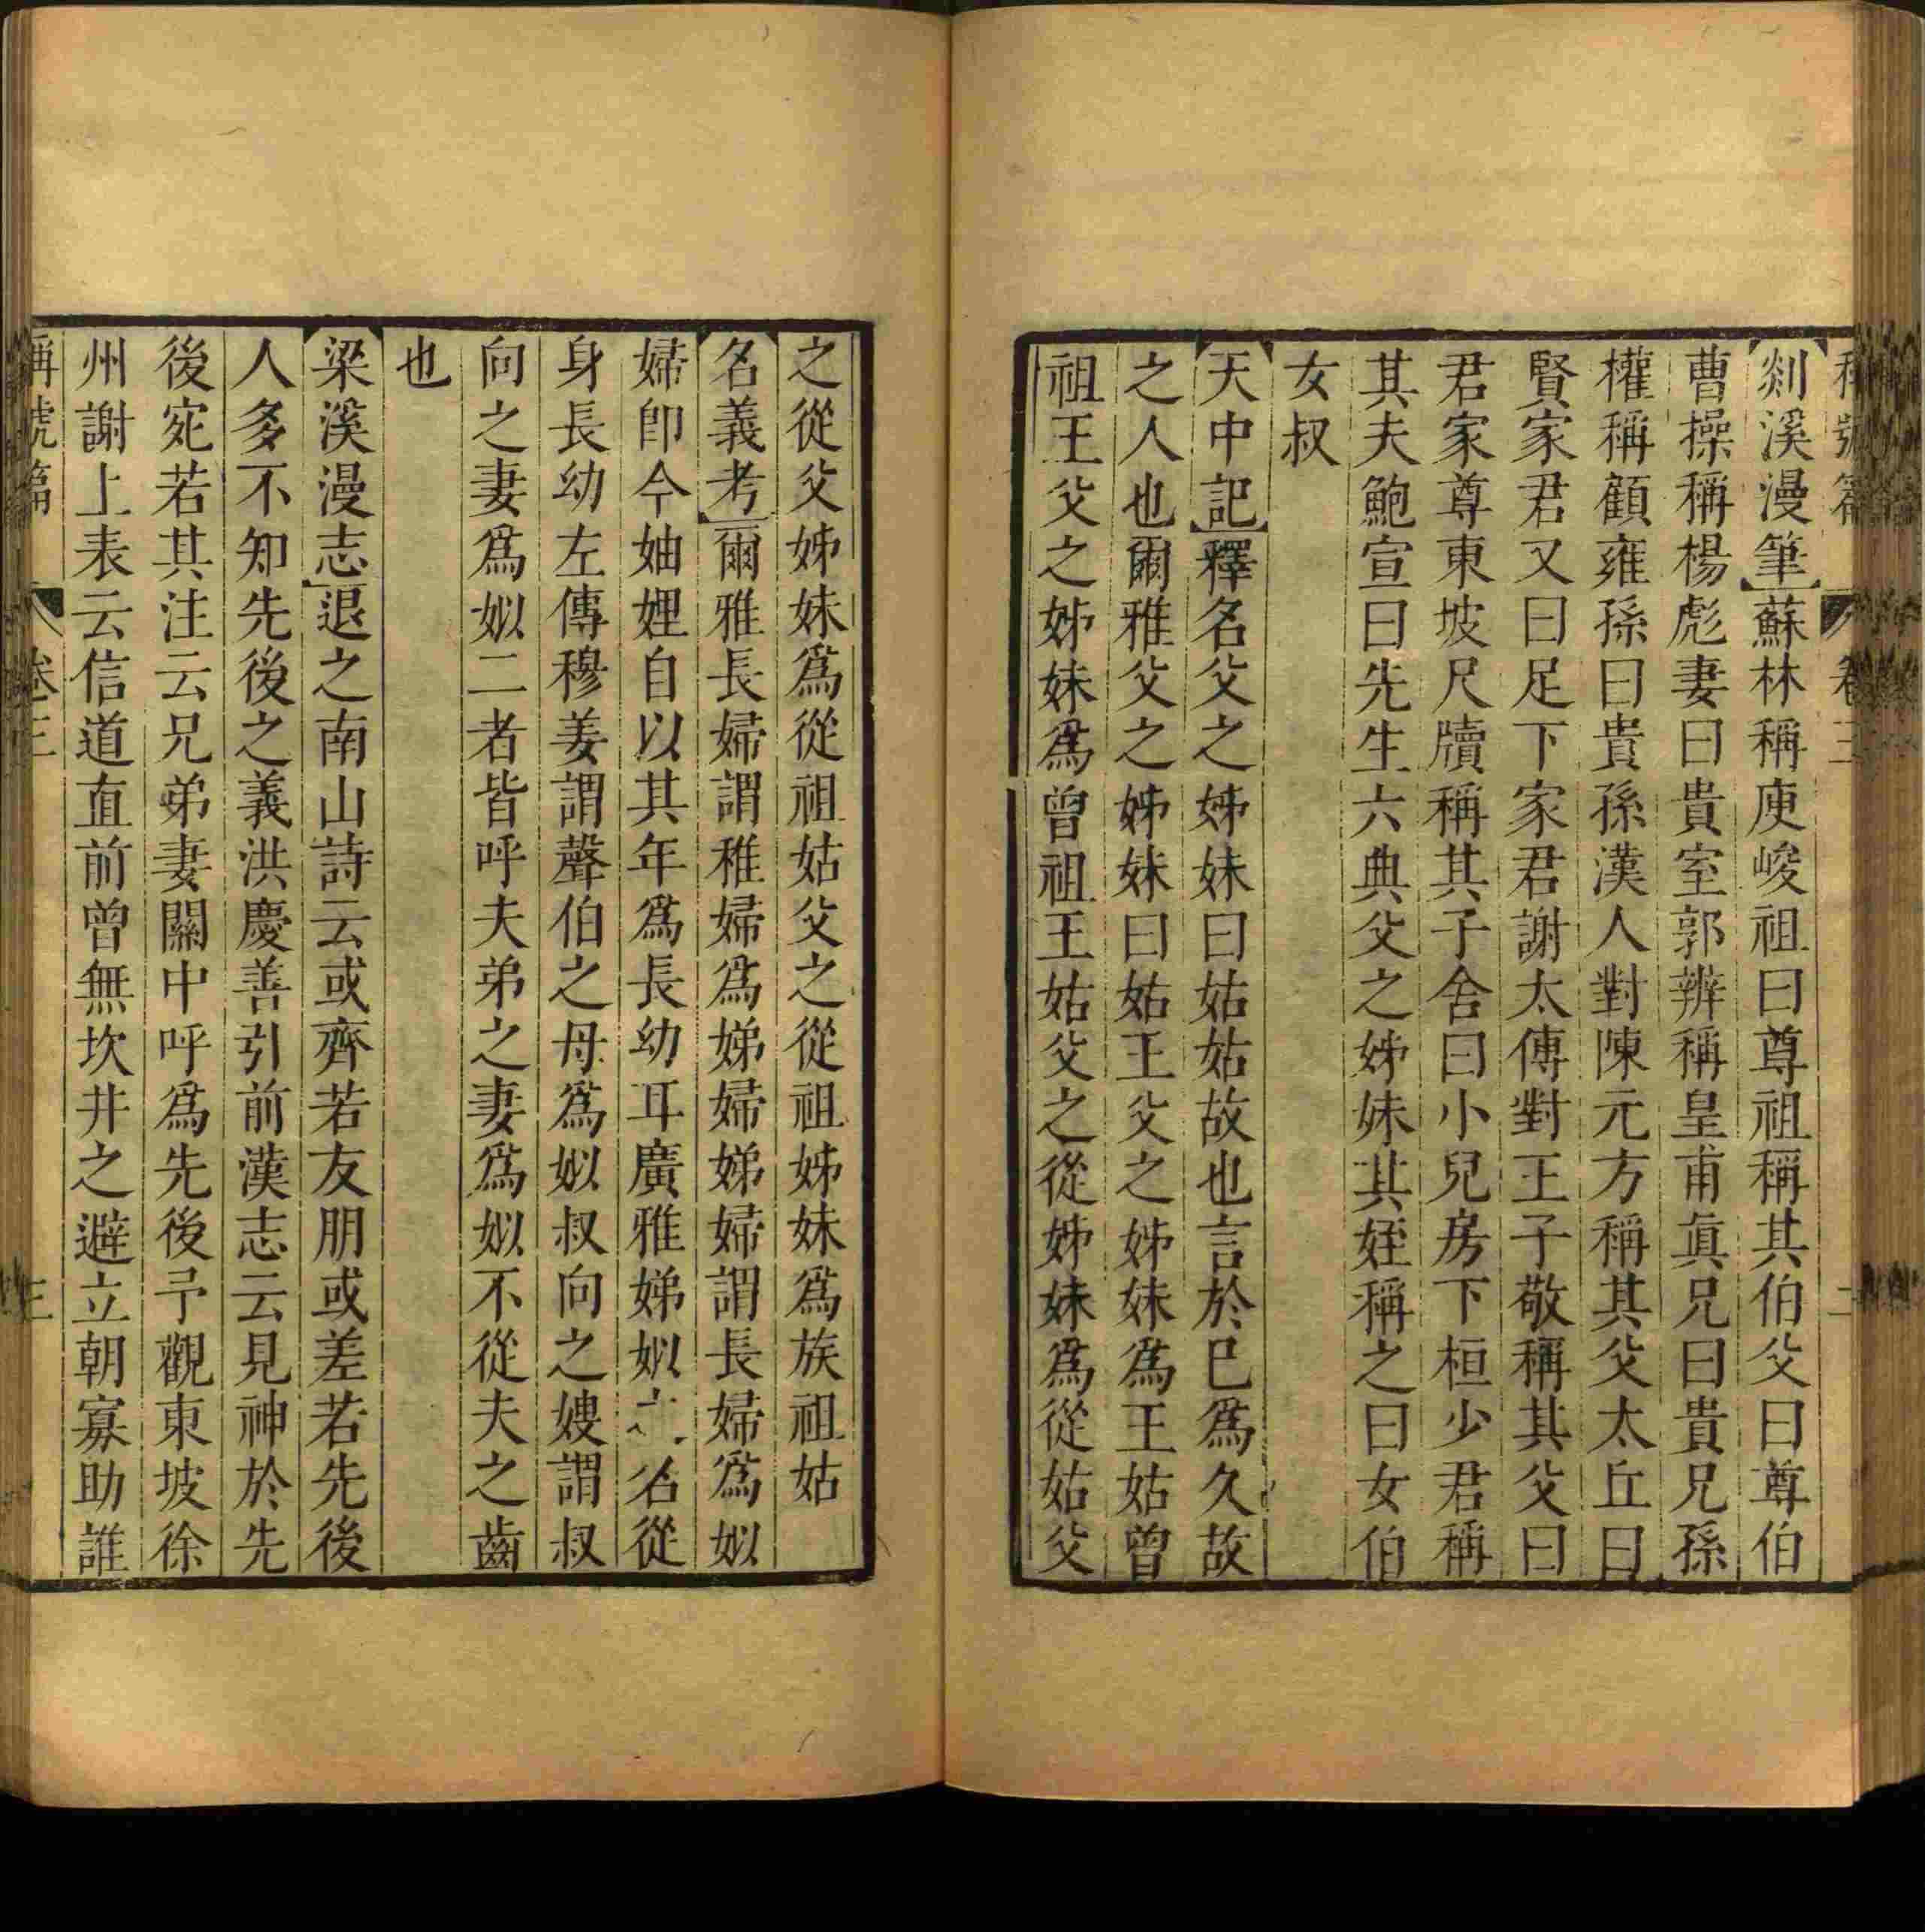 稱號篇 卷三 二
剡溪漫筆蘇林稱庾峻祖曰尊祖稱其伯父曰尊伯
曹操稱楊彪妻曰貴室郭辨稱皇甫眞兄曰貴兄孫
權稱顧雍孫曰貴孫漢人對陳元方稱其父太丘曰
賢家君又曰足下家君謝太傅對王子敬稱其父曰
君家尊東坡尺牘稱其子舍曰小兒房下桓少君稱
其夫鮑宣曰先生六典父之姊妹其姪稱之曰女伯
女叔
天中記釋名父之姊妹曰姑姑故也言於巳爲久故
之人也爾雅父之姊妹曰姑王父之姊妹爲王姑曾
祖王父之姊妹爲曾祖王姑父之從姊妹爲從姑父
之從父姊妹爲從祖姑父之從祖姊妹爲族祖姑
名義考爾雅長婦謂稚婦爲娣婦娣婦謂長婦爲姒
婦卽今妯娌自以其年爲長幼耳廣雅娣姒名從
身長幼左傳穆姜謂聲伯之母爲姒叔向之嫂謂叔
向之妻爲姒二者皆呼夫弟之妻爲姒不從夫之齒
也
梁溪漫志退之南山詩云或齊若友朋或差若先後
人多不知先後之義洪慶善引前漢志云見神於先
後宛若其注云兄弟妻關中呼爲先後予觀東坡徐
州謝上表云信道直前曾無坎井之避立朝寡助誰
稱號篇 卷三 三